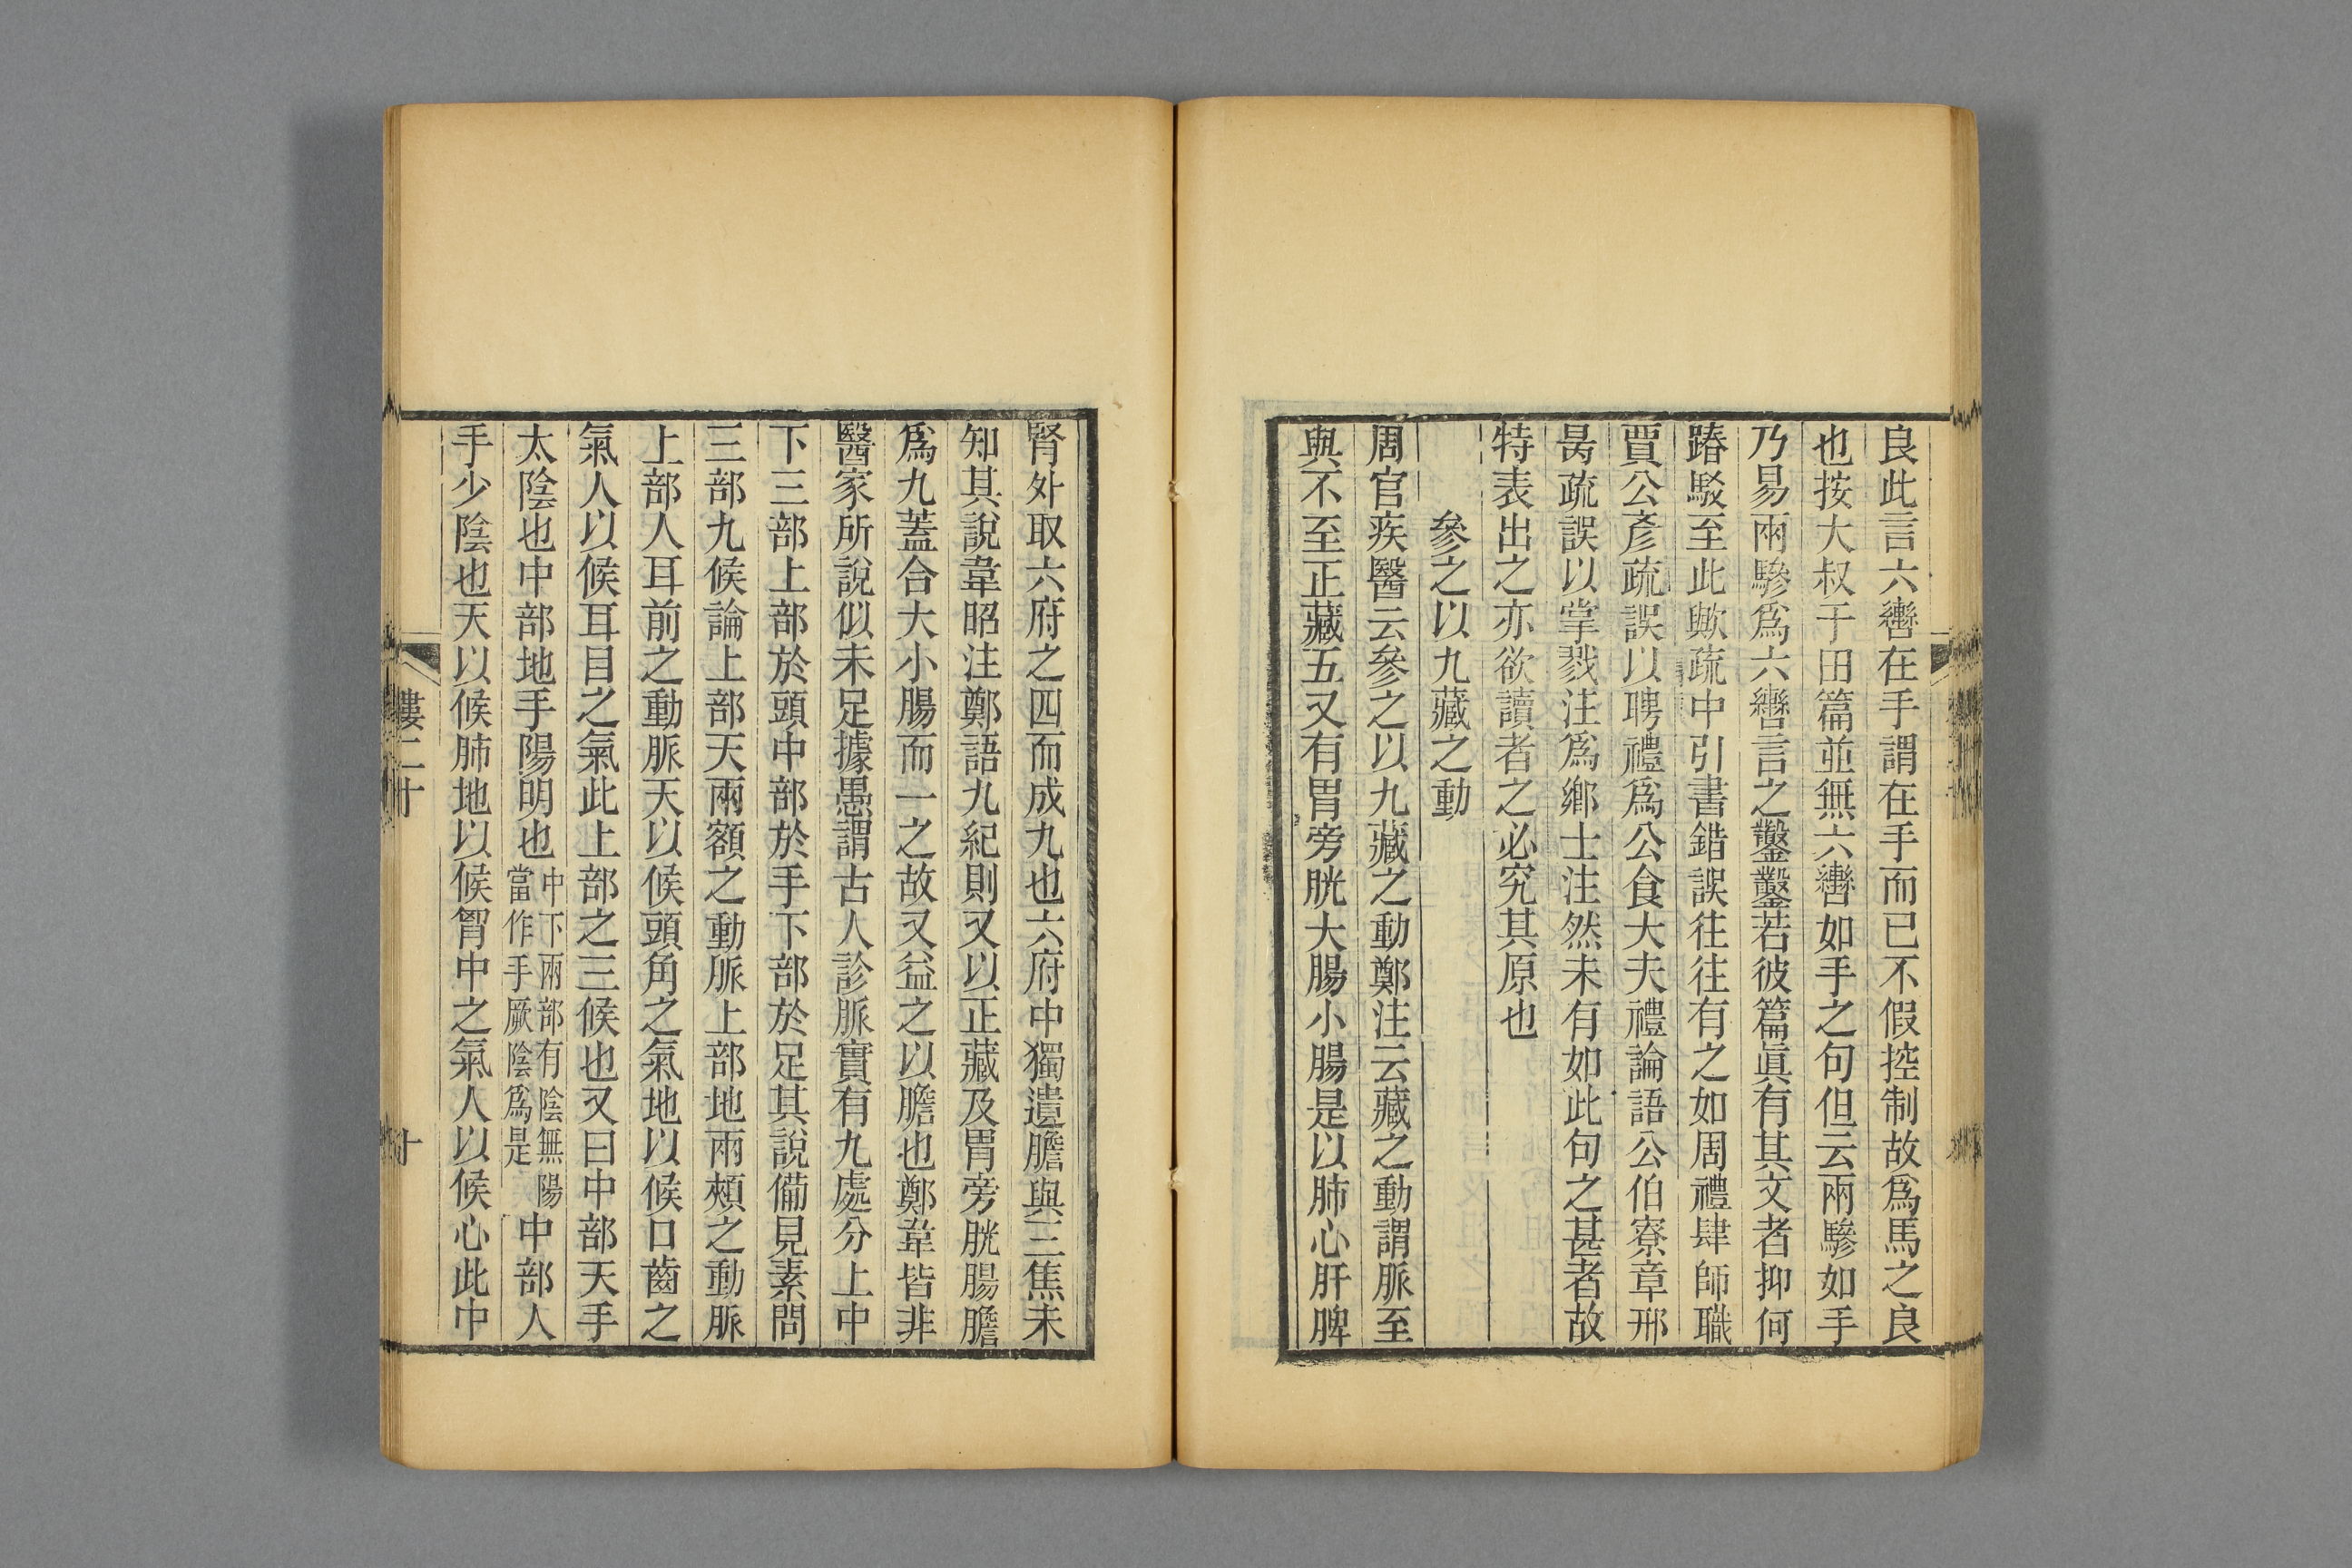 良此言六轡在手謂在手而已不假控制故爲馬之良
也按大叔于田篇並無六轡如手之句但云兩驂如手
乃易兩驂爲六轡言之鑿鑿若彼篇眞有其文者抑何
踳駁至此歟疏中引書錯誤往往有之如周禮肆師職
賈公彥疏誤以聘禮爲公食大夫禮論語公伯寮章邢
昺疏誤以掌戮注爲鄉士注然未有如此句之甚者故
特表出之亦欲讀者之必究其原也
參之以九藏之動
周官疾醫云參之以九藏之動鄭注云藏之動謂脈至
與不至正藏五又有胃旁胱大腸小腸是以肺心肝脾
腎外取六府之四而成九也六府中獨遺膽與三焦未
知其說韋昭注鄭語九紀則又以正藏及胃旁胱腸膽
爲九蓋合大小腸而一之故又益之以膽也鄭韋皆非
醫家所說似未足據愚謂古人診脈實有九處分上中
下三部上部於頭中部於手下部於足其說備見素問
三部九候論上部天兩額之動脈上部地兩頰之動脈
上部人耳前之動脈天以候頭角之氣地以候口齒之
氣人以候耳目之氣此上部之三候也又曰中部天手
太陰也中部地手陽明也中下兩部有陰無陽當作手厥陰爲是中部人
手少陰也天以候肺地以候胷中之氣人以候心此中
樓二十
十